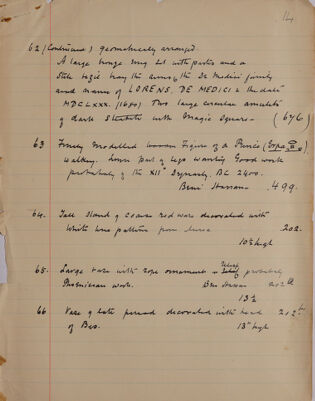 14
62 (Continued) geometrically arranged.
A large bronze ring set with paste and a
Stele
the arms of the De Medici family
and name of LORENS. DE MEDICI & the date
MDCLXXX. (1680) Two large circular amulets
of dark Steatite with magic square - (676)
63 Finely modelled wooden Figure of a Prince
walking. Lower part of legs wanting Good work
probably of the XIIth Dynasty. BC 2400.
Beni Hassan - 499.
64. Tall Stand of coarse red ware decorated with
White line pattern from 202.
10½ high
65. Large Vase with rope ornaments in probably
Phoenician work. Beni Hassan
13½
66 Vase of late period decorated with head
of Bes. 13" high